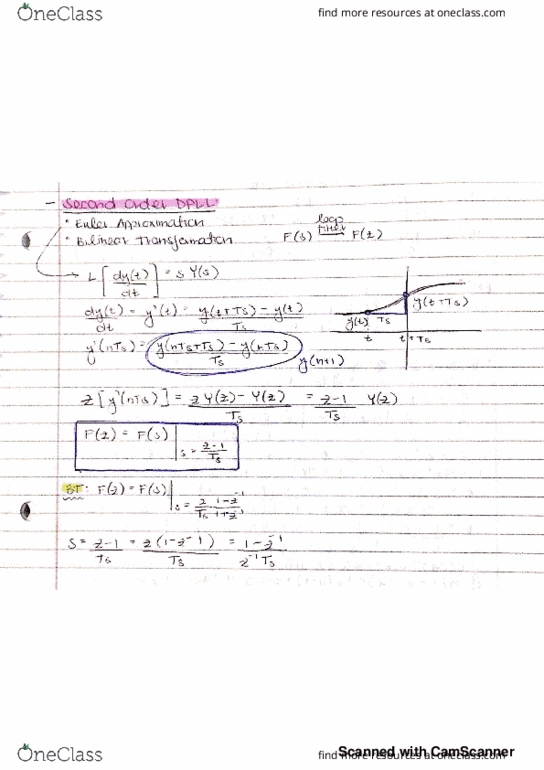 OneClass
find more resources at oneclass.com
- Second Order DPLL
• Euler Approximation
• Bilinear Transformation F(s) loop filter F(z)
L[dy(t)/dt] = s Y(s)
dy(t)/dt = y'(t) = y(t+Ts) - y(t)/Ts
y(t) Ts y(t+Ts)
t t+Ts
y'(nTs) = y(nTs+Ts) - y(nTs)/Ts y(n+1)
z[y'(nTs)] = zY(z) - Y(z)/Ts = z-1/Ts Y(z)
F(z) = F(s)|s = z-1/Ts
BT: F(z) = F(s)|s = 2/Ts 1-z⁻¹/1+z⁻¹
S = z-1/Ts = z(1-z⁻¹)/Ts = 1-z⁻¹/z⁻¹Ts
OneClass
find more resources at oneclass.com
Scanned with CamScanner